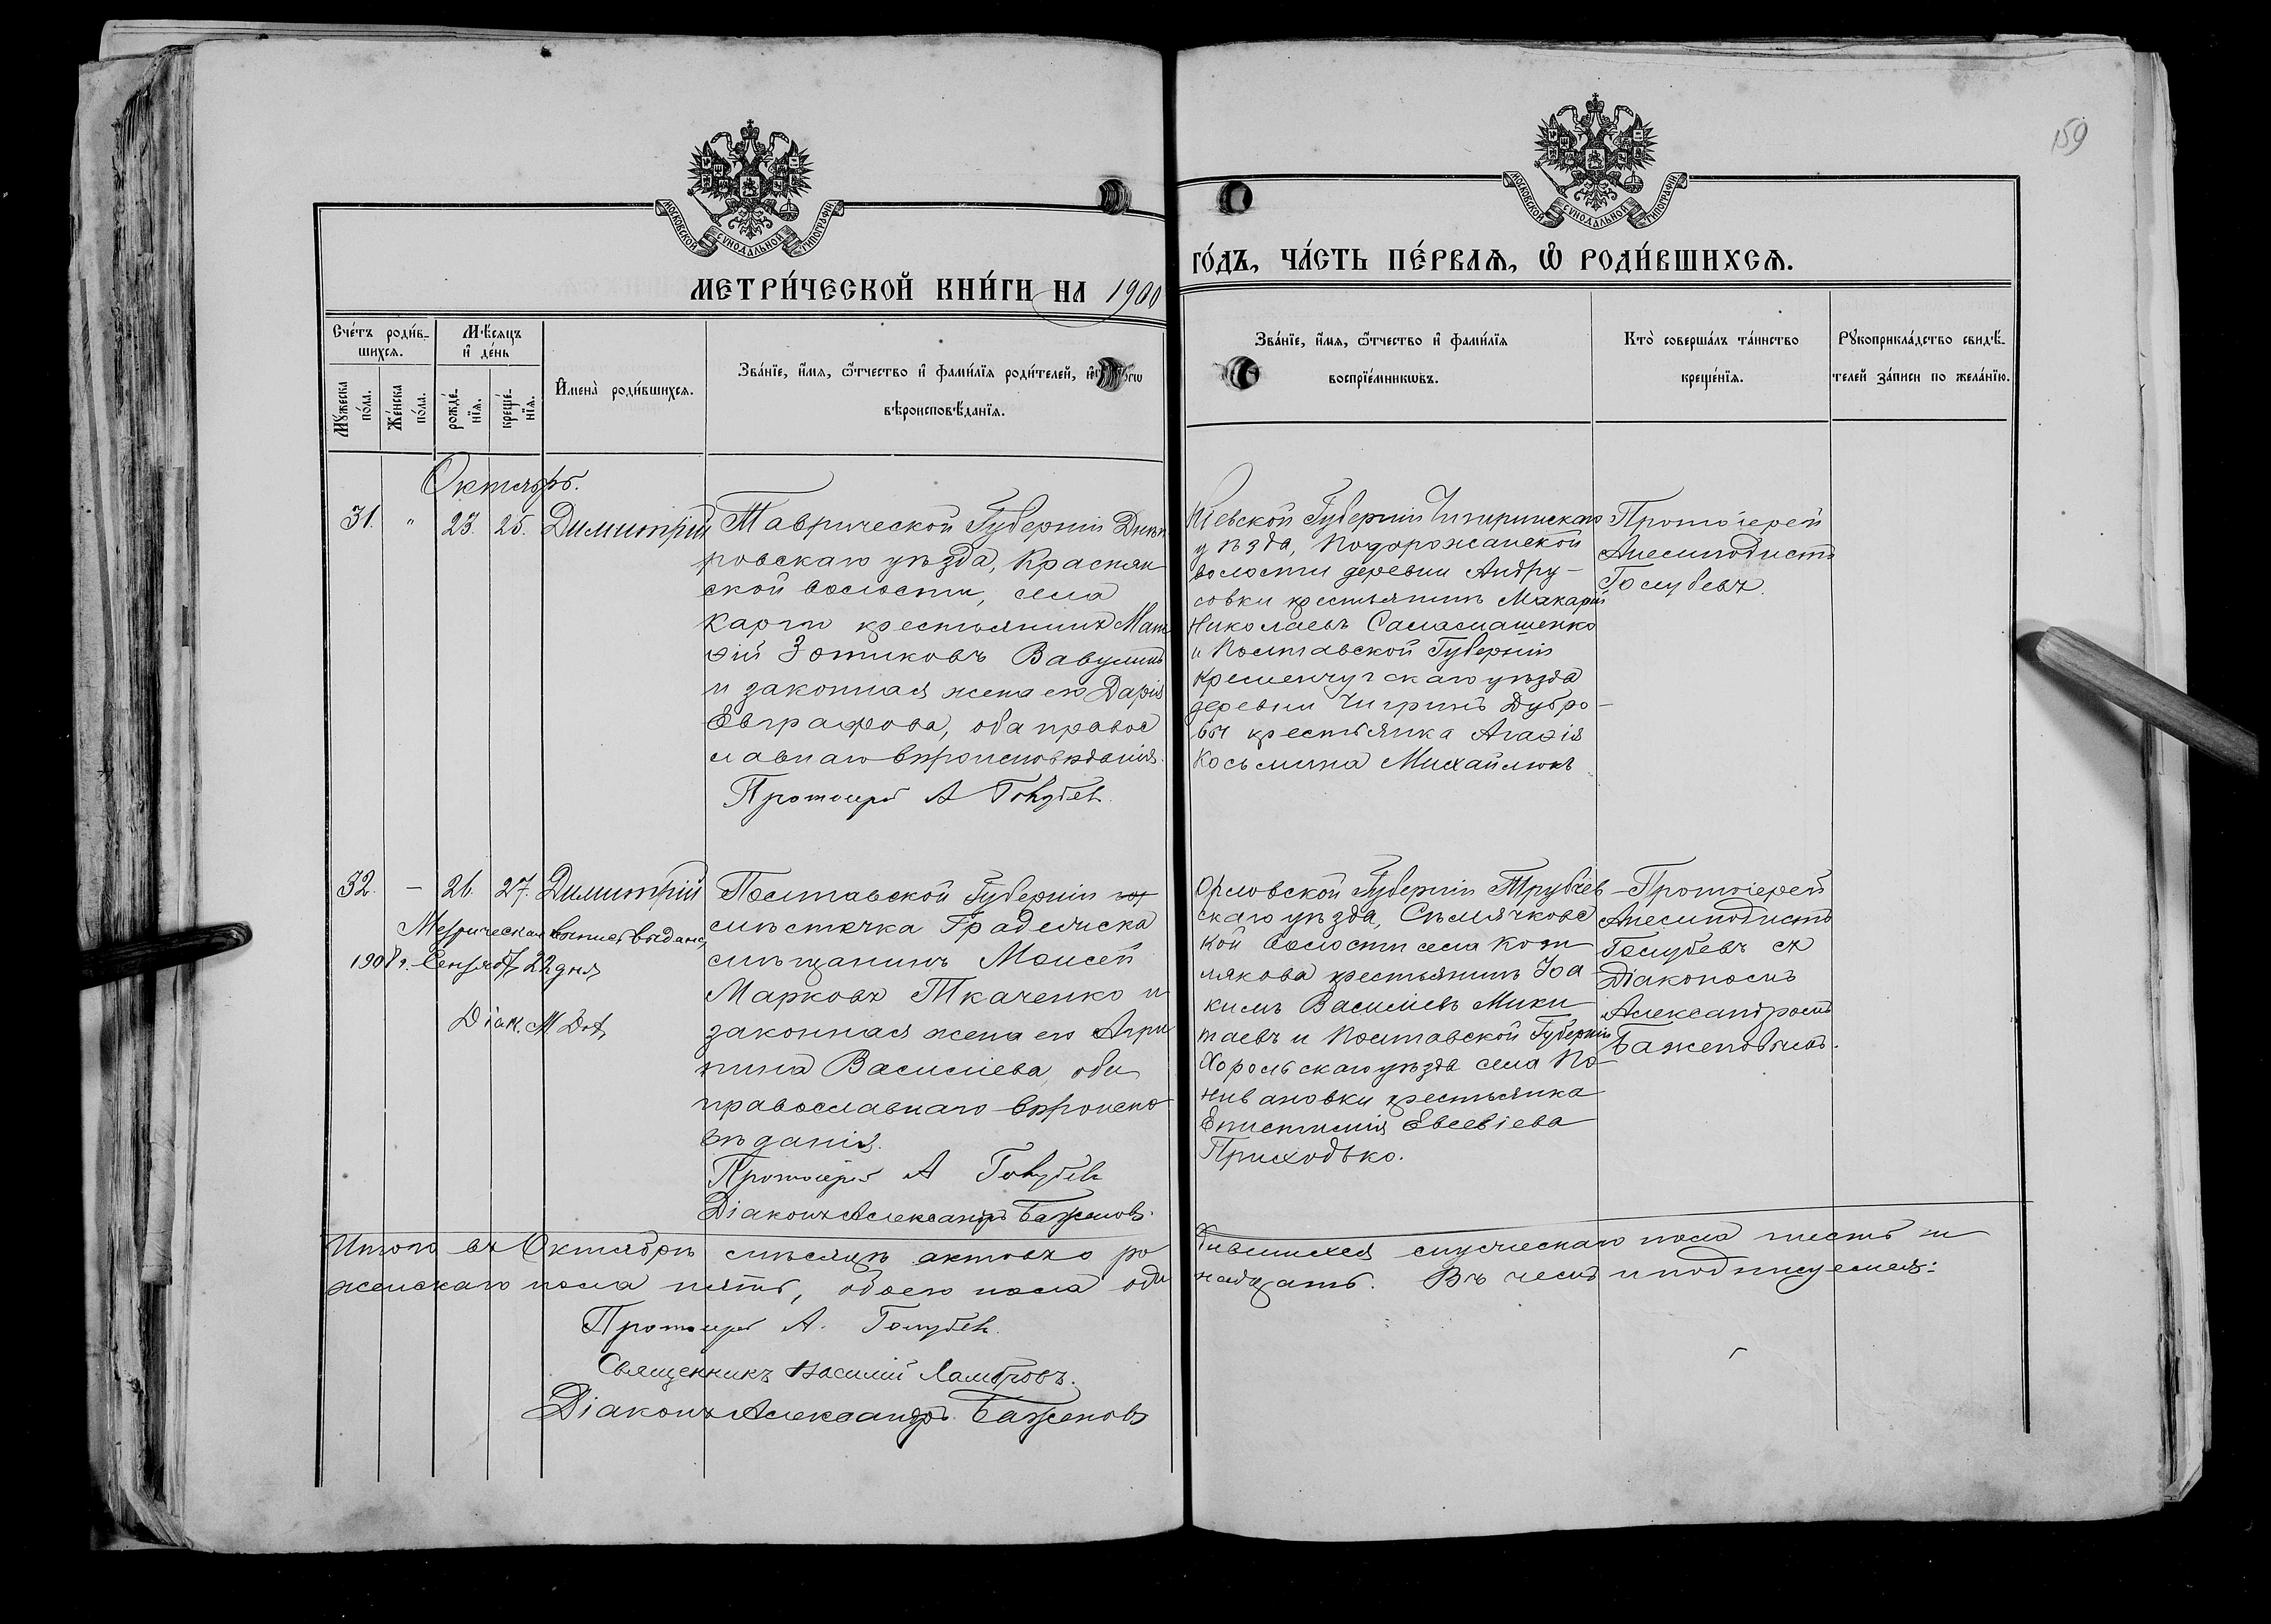 159
МОСКОВСКОЙ СѴНОДАЛЬНОЙ ТИПОГРАФІИ
МОСКОВСКОЙ СѴНОДАЛЬНОЙ ТИПОГРАФІИ
МЕТРИ́ЧЕСКОЙ КНИ́ГИ НА 1900
ГО́ДЪ, ЧА́СТЬ ПЕ́РВАѦ, Ѡ РОДИ́ВШИХСѦ.
Сче́тъ роди́в-
шихсѧ.
Мꙋ́жеска по́ла.
Же́нска по́ла.
Мѣ́сѧцъ
и҆ де́нь
рожде́-
нїѧ.
креще́-
нїѧ.
И҆мена̀ роди́вшихсѧ.
Зва́нїе, и҆́мѧ, ѻ҆́тчество и҆ фами́лїѧ роди́телей, и҆
вѣроисповѣ́данїѧ.
Зва́нїе, и҆́мѧ, ѻ҆́тчество и҆ фами́лїѧ
воспрїе́мникѡвъ.
Кто̀ соверша́лъ та́инство
креще́нїѧ.
Рꙋкоприкла́дство свидѣ́-
телей за́писи по жела́нїю.
Октябрь.
31. " 23. 25. Димитрій
Таврической Губерніи Днѣп
ровскаго уѣзда, Краснян
ской волости, села
Карги крестьянинъ Мат
ѳій Зотиковъ Вавулинъ
и законная жена его Дарія
Евграфова, оба правос
лавнаго вѣроисповѣданія.
Протоіерей А Голубев
Кіевской Губерніи Чигиринскаго
уѣзда, Подорожанской
волости деревни Андру-
совки крестьянинъ Макарій
Николаевъ Саласиашенко
и Полтавской Губерніи
Кременчугскаго уѣзда
деревни Чигринъ Дубро-
вы крестьянка Агаѳія
Косьмина Михайлюкъ
Протоіерей
Анемподистъ
Голубевъ.
32. - 26. 27. Димитрій
Метрическая выпись выдана
1908 г. Сентяб. 22 дня
Діак. М.
Полтавской Губерніи
мѣстечка Градижска
мѣщанинъ Моисей
Марковъ Ткаченко и
законная жена его Агри
пина Василіева, оба
православнаго вѣроиспо
вѣданія.
Протоіерей А Голубев
Діаконъ Александръ Баженовъ.
Орловской Губерніи Трубчев-
скаго уѣзда, Сѣмячковс
кой волости села Кот
лякова крестьянинъ Іоа
кимъ Василіевъ Мики
таевъ и Полтавской Губерніи
Хорольскаго уѣзда села По-
ливановки крестьянка
Епистимія Евсевіева
Приходько.
Протоіерей
Анемподистъ
Голубевъ съ
Діакономъ
Александромъ
Баженовымъ.
Итого въ Октябрѣ мѣсяцѣ актовъ о ро
дившихся мужескаго пола шесть и
женскаго пола пять, обоего пола оди
надцать. Въ чемъ и подписуемся:
Протоіерей А. Голубев.
Священникъ Василій Ламбровъ.
Діаконъ Александръ Баженовъ